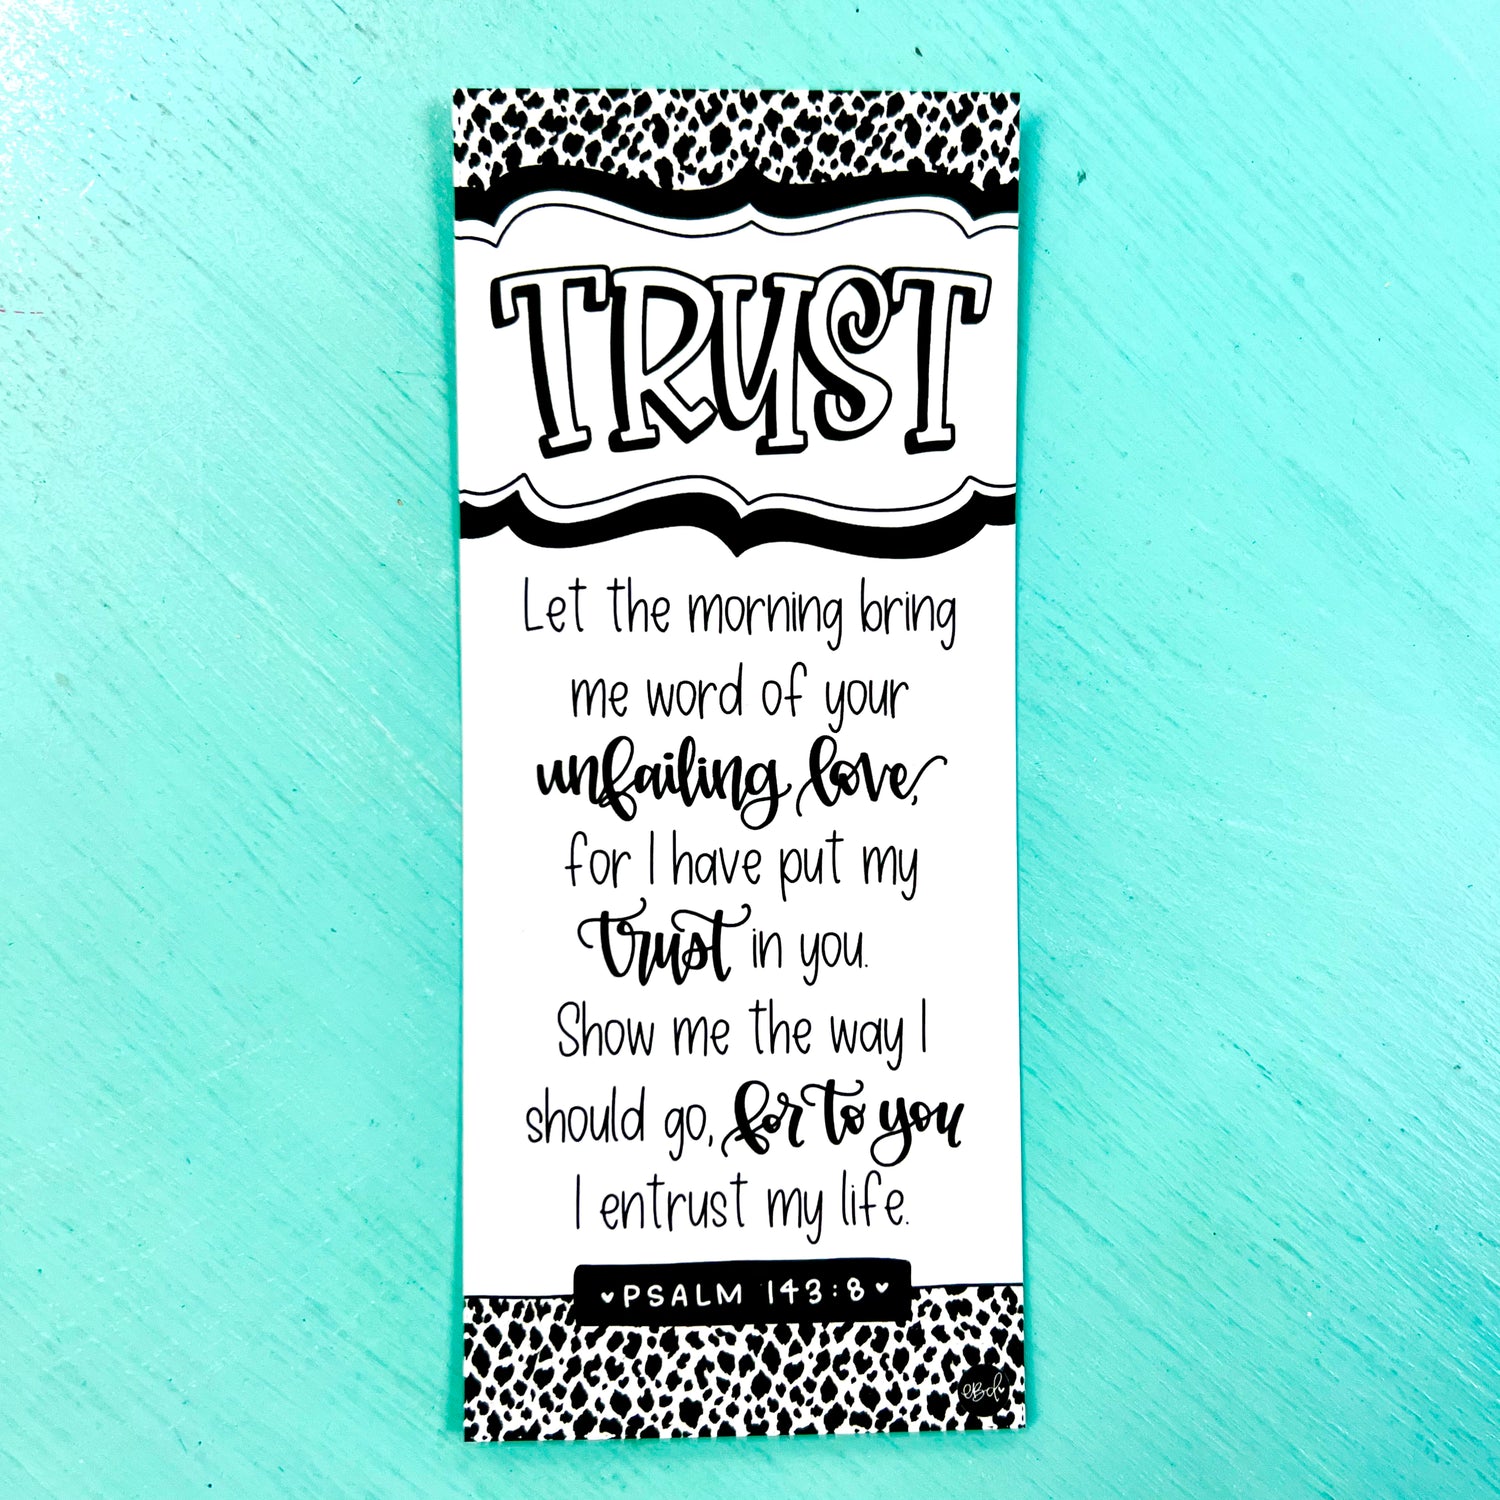 TRUST
Let the morning bring
me word of your
unfailing love,
for I have put my
trust in you.
Show me the way I
should go, for to you
I entrust my life.
♥PSALM 143:8♥
eBd